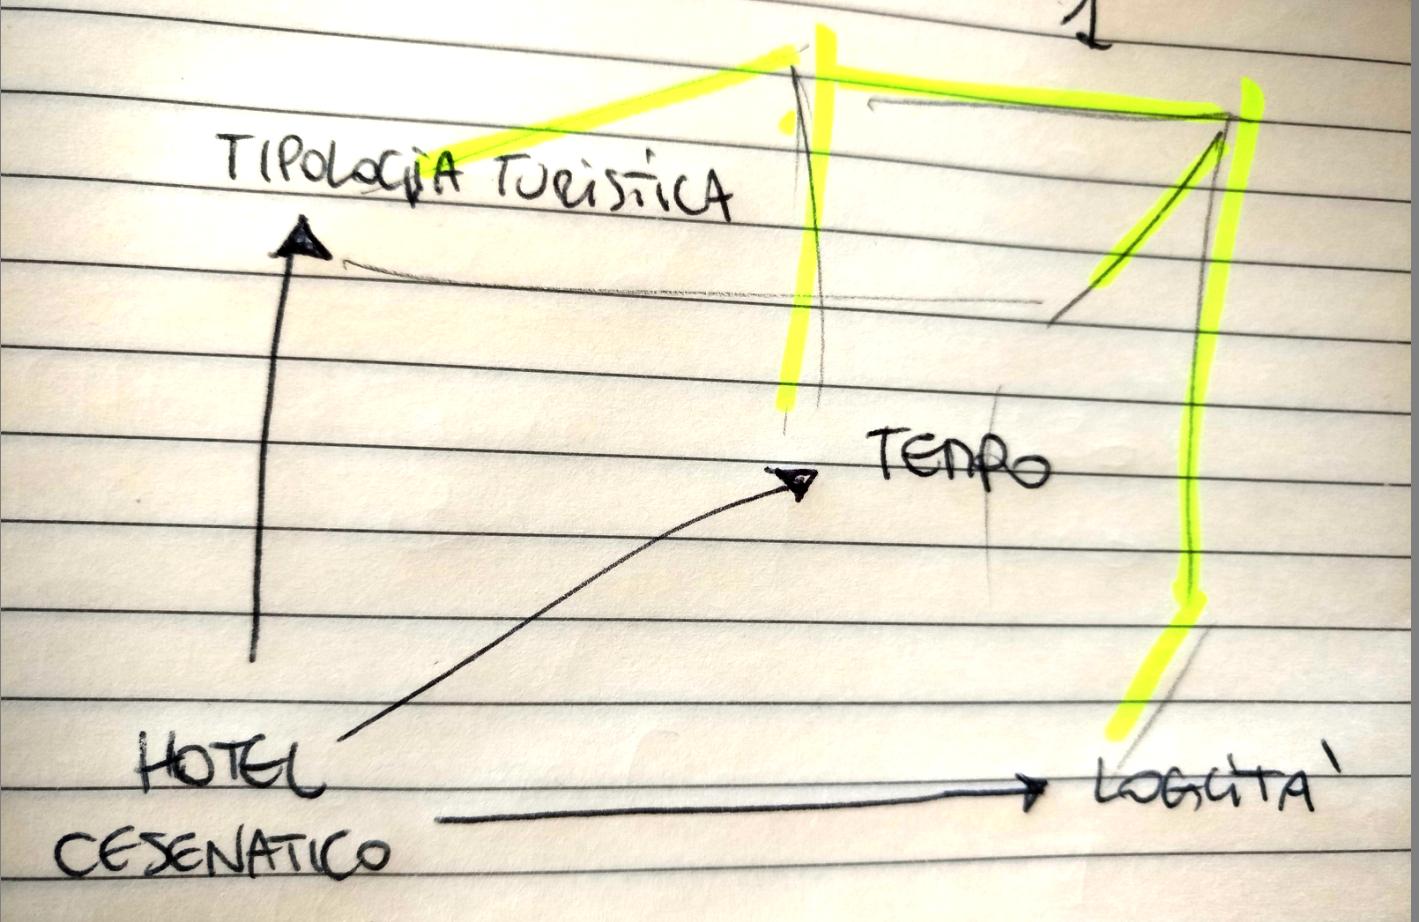 1
TIPOLOGIA TURISTICA
TEMPO
HOTEL
CESENATICO
LOCALITA'